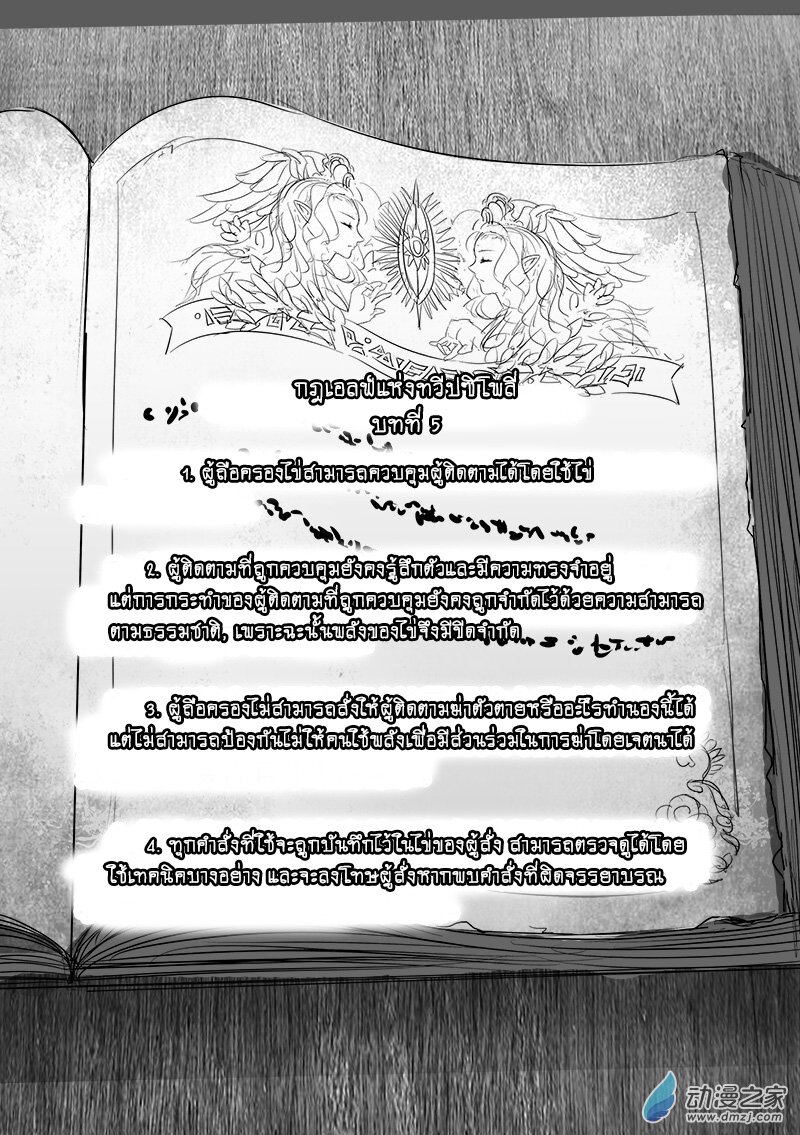 กฎเอลฟ์แห่งทวีปซิโพลี่
บทที่ 5
1. ผู้ถือครองไข่สามารถควบคุมผู้ติดตามได้โดยใช้ไข่
2. ผู้ติดตามที่ถูกควบคุมยังคงรู้สึกตัวและมีความทรงจำอยู่
แต่การกระทำของผู้ติดตามที่ถูกควบคุมยังคงถูกจำกัดไว้ด้วยความสามารถ
ตามธรรมชาติ, เพราะฉะนั้นพลังของไข่จึงมีขีดจำกัด
3. ผู้ถือครองไม่สามารถสั่งให้ผู้ติดตามฆ่าตัวตายหรืออะไรทำนองนี้ได้
แต่ไม่สามารถป้องกันไม่ให้คนใช้พลังเพื่อมีส่วนร่วมในการฆ่าโดยเจตนาได้
4. ทุกคำสั่งที่ใช้จะถูกบันทึกไว้ในไข่ของผู้สั่ง สามารถตรวจดูได้โดย
ใช้เทคนิคบางอย่าง และจะลงโทษผู้สั่งหากพบคำสั่งที่ผิดจรรยาบรณ
动漫之家
www.dmzj.com